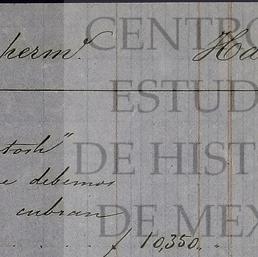 herm.ᵈ
Ha
CENTRO
ESTUD
tosh"
DE HIST
e debemos
cubran
DE MEX
$ 10,350..